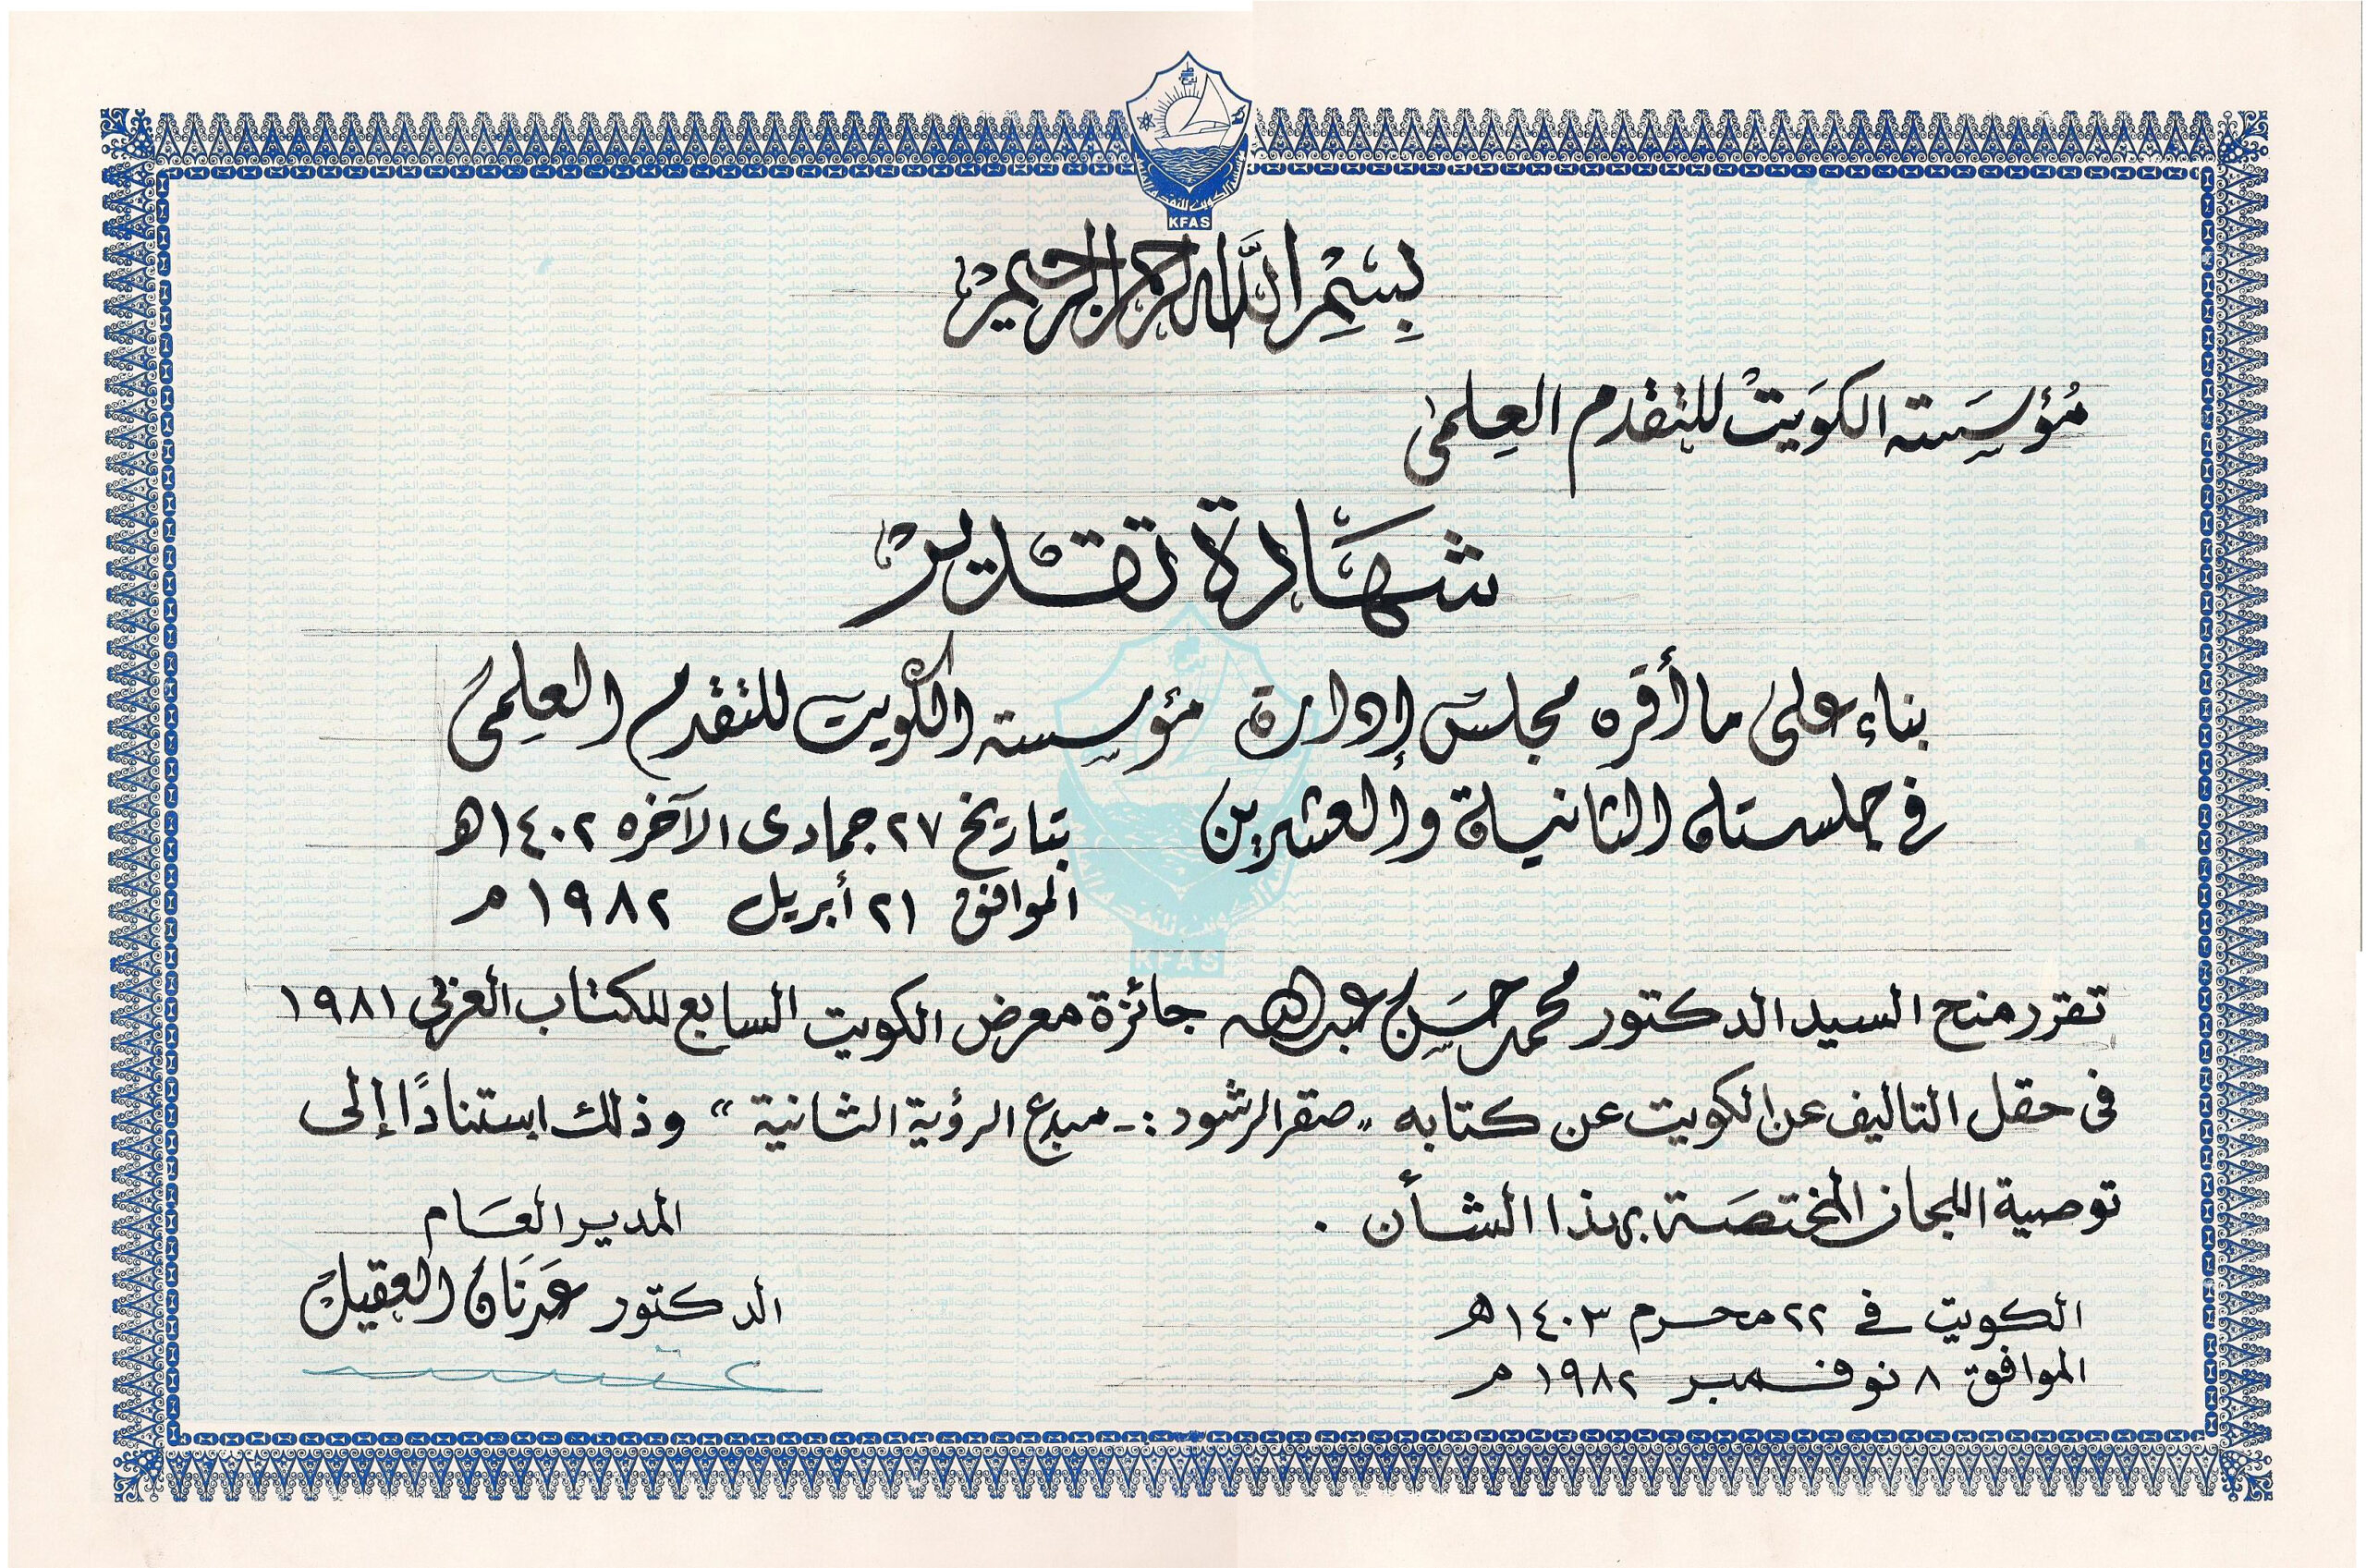 KFAS
بِسْمِ اللَّه الرحمن الرحيم
مُؤسِسَة الكوَيتْ للتقدم العِلمى
شهَادة تقدير
بناء على ما أقره مجلس إدارة مؤسِسة الكويت للتقدم العلِمى
فى جلسته الثانية والعشرين بتاريخ ٢٧ جمادى الآخره ١٤٠٢هـ
الموافق ٢١ أبريل ١٩٨٢ م
KFAS
تقرر منح السيد الدكتور محمد حسَن عبدالله جائزة معرض الكويت السابع للكتاب العربى ١٩٨١
فى حقل التاليف عن الكويت عن كتابه " صقر الرشود :- مبدع الرؤية الثانية " وذلك استنادًا إلى
توصية اللجان المختصَة بهذا الشأن .
المدير العَام
الدكتور عَدنَان العقيل
الكويت فى ٢٢ محرم ١٤٠٣هـ
الموافق ٨ نوفمبر ١٩٨٢ م